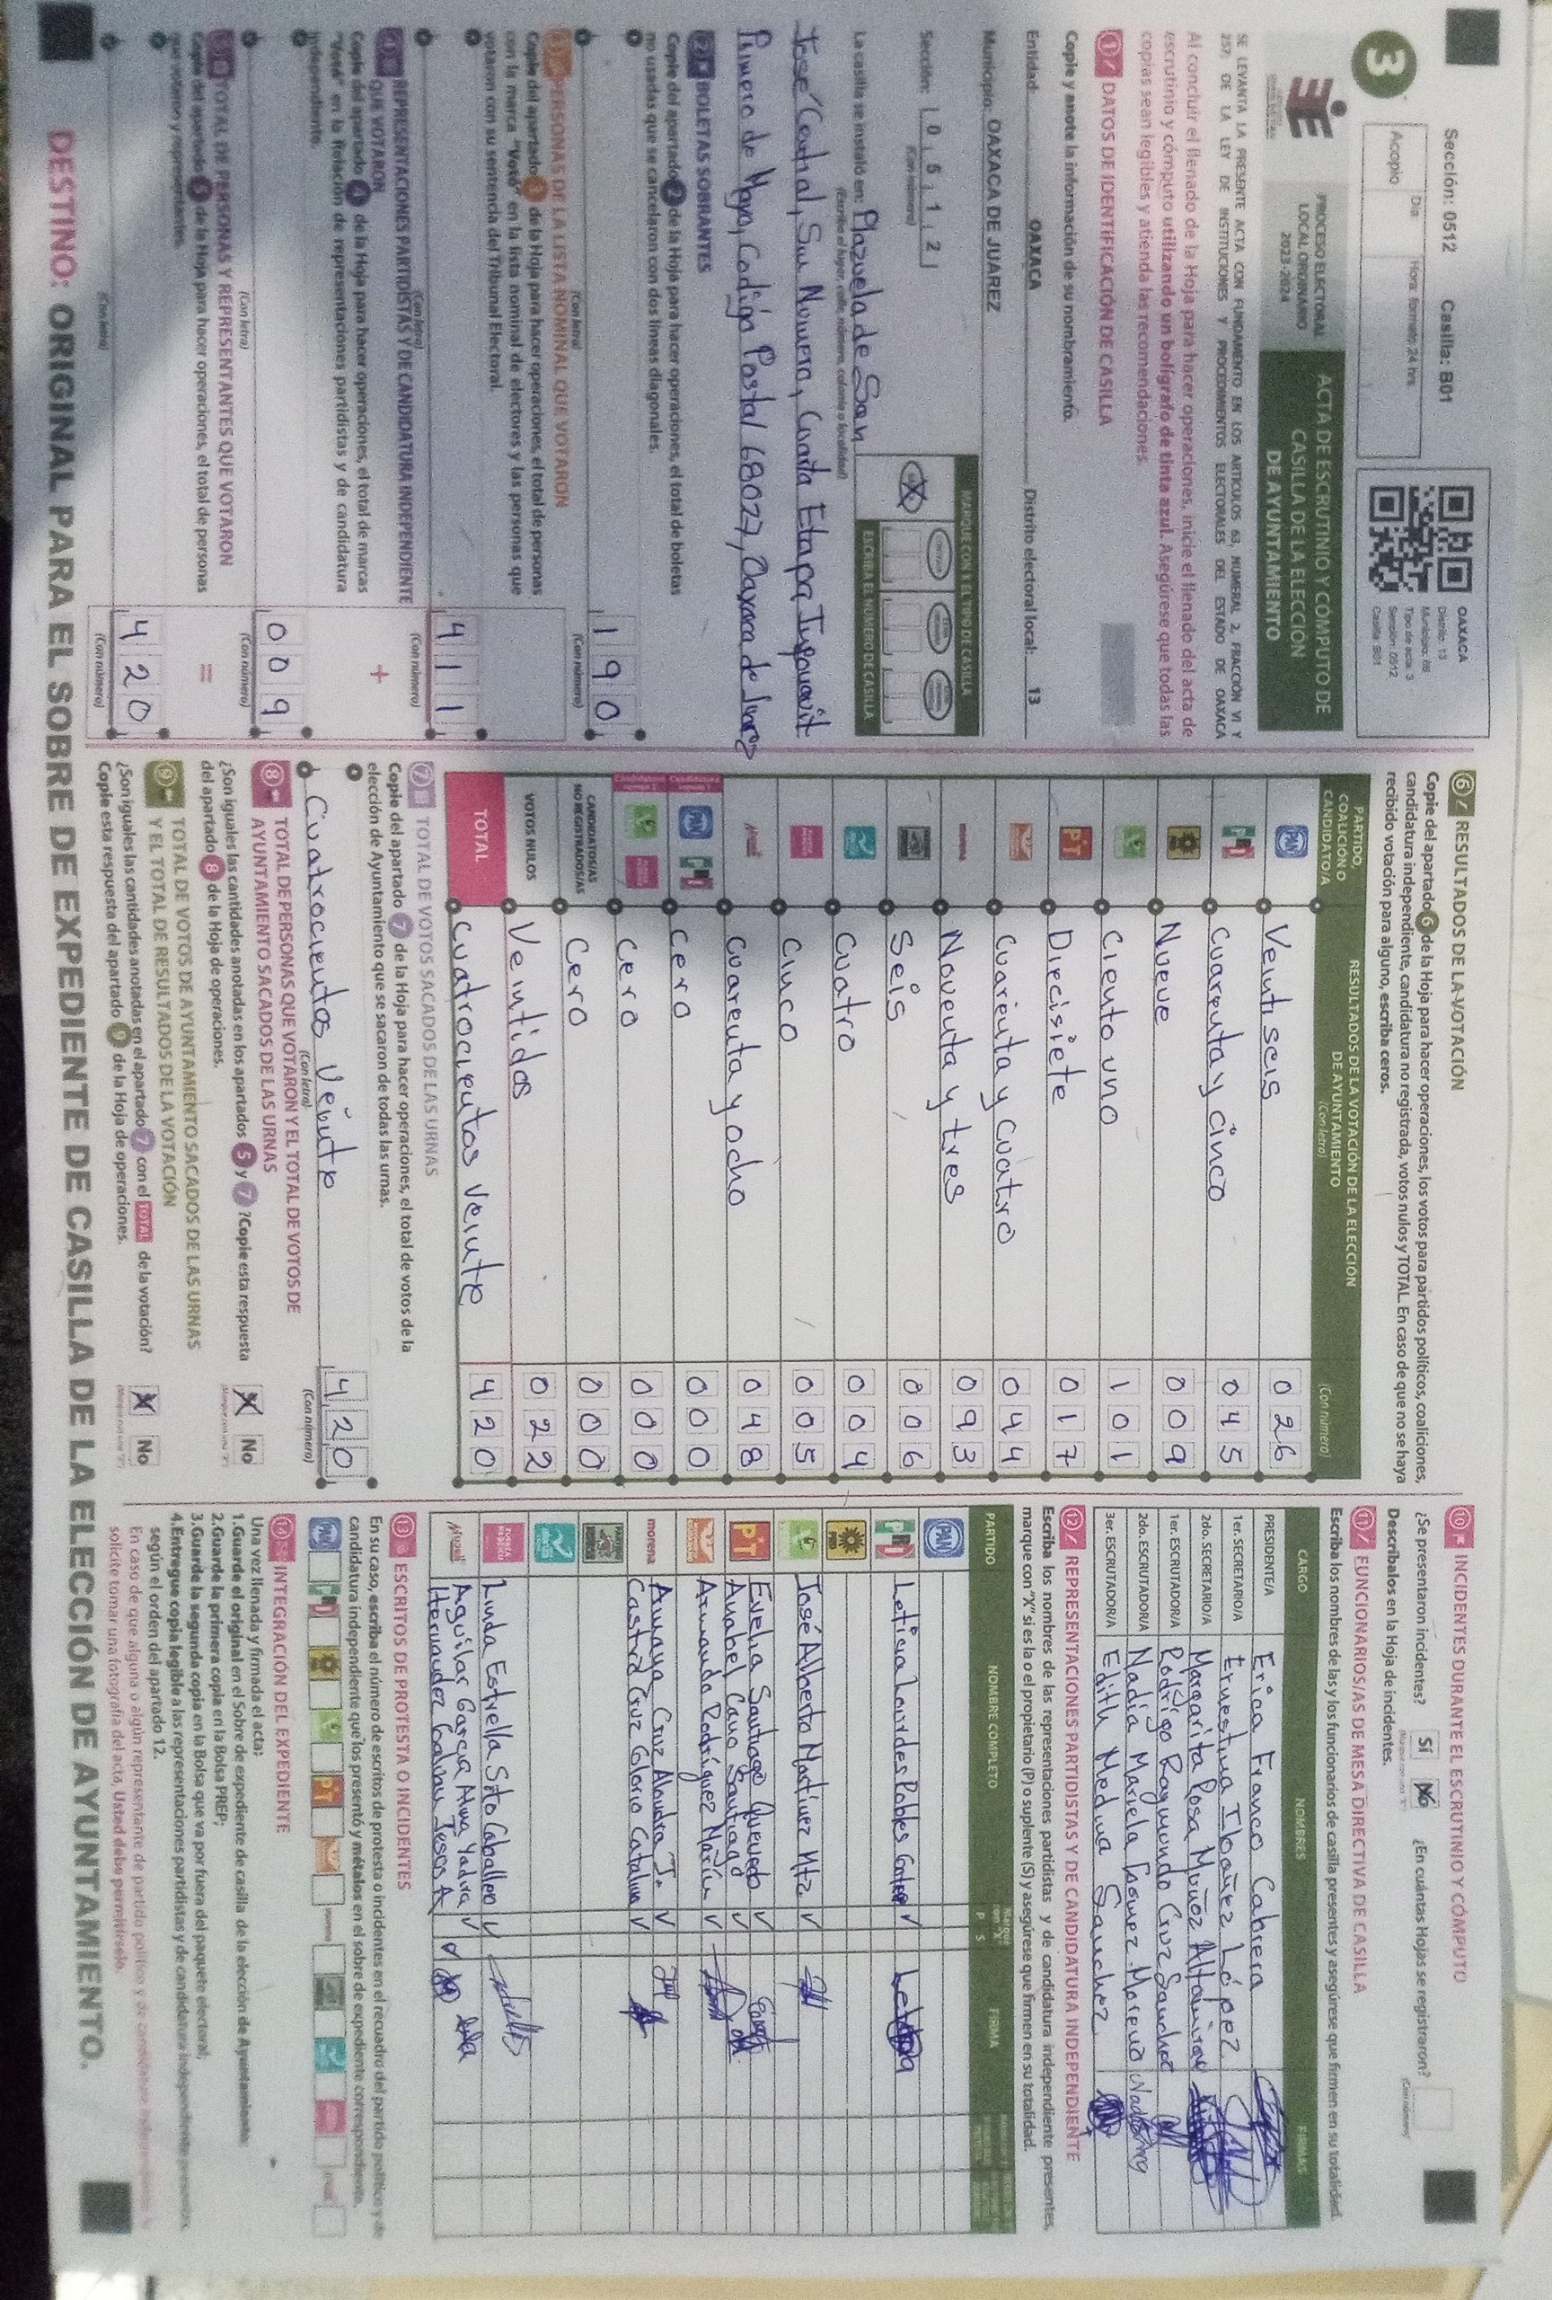 Sección: 0512 Casilla: B01
3
Acopio
Día
Hora: formato 24 hrs
OAXACA
Distrito: 13
Tipo de acta: 3
Sección: 0512
Casilla: B01
PROCESO ELECTORAL
LOCAL ORDINARIO
2023-2024
ACTA DE ESCRUTINIO Y CÓMPUTO DE
CASILLA DE LA ELECCIÓN
DE AYUNTAMIENTO
SE LEVANTA LA PRESENTE ACTA CON FUNDAMENTO EN LOS ARTÍCULOS 63, NUMERAL 2, FRACCIÓN VI Y
257; DE LA LEY DE INSTITUCIONES Y PROCEDIMIENTOS ELECTORALES DEL ESTADO DE OAXACA
Al concluir el llenado de la Hoja para hacer operaciones, inicie el llenado del acta de
escrutinio y cómputo utilizando un bolígrafo de tinta azul. Asegúrese que todas las
copias sean legibles y atienda las recomendaciones.
1 DATOS DE IDENTIFICACIÓN DE CASILLA
Copie y anote la información de su nombramiento.
Entidad: OAXACA Distrito electoral local: 13
Municipio: OAXACA DE JUÁREZ
Sección: 0 5 1 2
(Con número)
MARQUE CON X EL TIPO DE CASILLA
ESCRIBA EL NÚMERO DE CASILLA
La casilla se instaló en: Plazuela de San
(Escriba el lugar, calle, número, colonia o localidad)
José Central, Sin Numero, Cuarta Etapa Infonavit
Primero de Mayo, Codigo Postal 68027, Oaxaca de Juarez
2 BOLETAS SOBRANTES
Copie del apartado 2 de la Hoja para hacer operaciones, el total de boletas
no usadas que se cancelaron con dos líneas diagonales.
190
(Con letra) (Con número)
3 PERSONAS DE LA LISTA NOMINAL QUE VOTARON
Copie del apartado 3 de la Hoja para hacer operaciones, el total de personas
con la marca "Votó" en la lista nominal de electores y las personas que
votaron con su sentencia del Tribunal Electoral.
411
(Con letra) (Con número)
4 REPRESENTACIONES PARTIDISTAS Y DE CANDIDATURA INDEPENDIENTE
QUE VOTARON
+
Copie del apartado 4 de la Hoja para hacer operaciones, el total de marcas
"Votó" en la Relación de representaciones partidistas y de candidatura
independiente.
009
(Con letra) (Con número)
5 TOTAL DE PERSONAS Y REPRESENTANTES QUE VOTARON
=
Copie del apartado 5 de la Hoja para hacer operaciones, el total de personas
que votaron y representantes.
420
(Con letra) (Con número)
6 RESULTADOS DE LA VOTACIÓN
Copie del apartado 6 de la Hoja para hacer operaciones, los votos para partidos políticos, coaliciones,
candidatura independiente, candidatura no registrada, votos nulos y TOTAL. En caso de que no se haya
recibido votación para alguno, escriba ceros.
PARTIDO,
COALICIÓN O
CANDIDATO/A
RESULTADOS DE LA VOTACIÓN DE LA ELECCIÓN
DE AYUNTAMIENTO
(Con letra) (Con número)
PAN Ventiseis 026
PRI Cuarenta y cinco 045
Nueve 009
Ciento uno 101
PT Diecisiete 017
Cuarenta y cuatro 044
morena Noventa y tres 093
Seis 006
Cuatro 004
Cinco 005
Cuarenta y ocho 048
PAN PRI Cero 000
Cero 000
CANDIDATOS/AS
NO REGISTRADOS/AS
Cero 000
VOTOS NULOS Veintidos 022
TOTAL Cuatrocientos veinte 420
7 TOTAL DE VOTOS SACADOS DE LAS URNAS
Copie del apartado 7 de la Hoja para hacer operaciones, el total de votos de la
elección de Ayuntamiento que se sacaron de todas las urnas.
Cuatrocientos Veinte 420
(Con letra) (Con número)
8 TOTAL DE PERSONAS QUE VOTARON Y EL TOTAL DE VOTOS DE
AYUNTAMIENTO SACADOS DE LAS URNAS
¿Son iguales las cantidades anotadas en los apartados 5 y 7 ? Copie esta respuesta
del apartado 8 de la Hoja de operaciones.
X No
9 TOTAL DE VOTOS DE AYUNTAMIENTO SACADOS DE LAS URNAS
Y EL TOTAL DE RESULTADOS DE LA VOTACIÓN
¿Son iguales las cantidades anotadas en el apartado 7 con el TOTAL de la votación?
Copie esta respuesta del apartado 9 de la Hoja de operaciones.
X No
10 INCIDENTES DURANTE EL ESCRUTINIO Y CÓMPUTO
¿Se presentaron incidentes? Sí No ¿En cuántas Hojas se registraron?
(Con número)
Descríbalos en la Hoja de incidentes.
11 FUNCIONARIOS/AS DE MESA DIRECTIVA DE CASILLA
Escriba los nombres de las y los funcionarios de casilla presentes y asegúrese que firmen en su totalidad.
CARGO NOMBRES FIRMAS
PRESIDENTE/A Erica Franco Cabrera
1er. SECRETARIO/A Ernestina Ibañez López
2do. SECRETARIO/A Margarita Rosa Muñoz Altamirano
1er. ESCRUTADOR/A Rodrigo Raymundo Cruz Sanchez
2do. ESCRUTADOR/A Nadia Mariela Gomez Moreno
3er. ESCRUTADOR/A Edith Medina Sanchez
12 REPRESENTACIONES PARTIDISTAS Y DE CANDIDATURA INDEPENDIENTE
Escriba los nombres de las representaciones partidistas y de candidatura independiente presentes,
marque con "X" si es la o el propietario (P) o suplente (S) y asegúrese que firmen en su totalidad.
PARTIDO NOMBRE COMPLETO P S FIRMA
PAN
PRI Leticia Lourdes Robles
PRD
José Alberto Martinez Mtz
PT Evelia Santiago Quevedo
Anabel Cano Santiago
Armando Rodríguez Marín
morena Amaya Cruz Alondra I.
Castro Cruz Gloria Catalina
Linda Estrella Sto Caballero
Aguilar Garcia Alma Yadira
Hernandez Galvan Jesus A
13 ESCRITOS DE PROTESTA O INCIDENTES
En su caso, escriba el número de escritos de protesta o incidentes en el recuadro del partido político y de
candidatura independiente que los presentó y métalos en el sobre de expediente correspondiente.
14 INTEGRACIÓN DEL EXPEDIENTE
Una vez llenada y firmada el acta:
1.Guarde el original en el Sobre de expediente de casilla de la elección de Ayuntamiento;
2.Guarde la primera copia en la Bolsa PREP;
3.Guarde la segunda copia en la Bolsa que va por fuera del paquete electoral;
4.Entregue copia legible a las representaciones partidistas y de candidatura independiente presentes,
según el orden del apartado 12.
En caso de que alguna o algún representante de partido político y de candidatura independiente le
solicite tomar una fotografía del acta, Usted debe permitírselo.
DESTINO: ORIGINAL PARA EL SOBRE DE EXPEDIENTE DE CASILLA DE LA ELECCIÓN DE AYUNTAMIENTO.